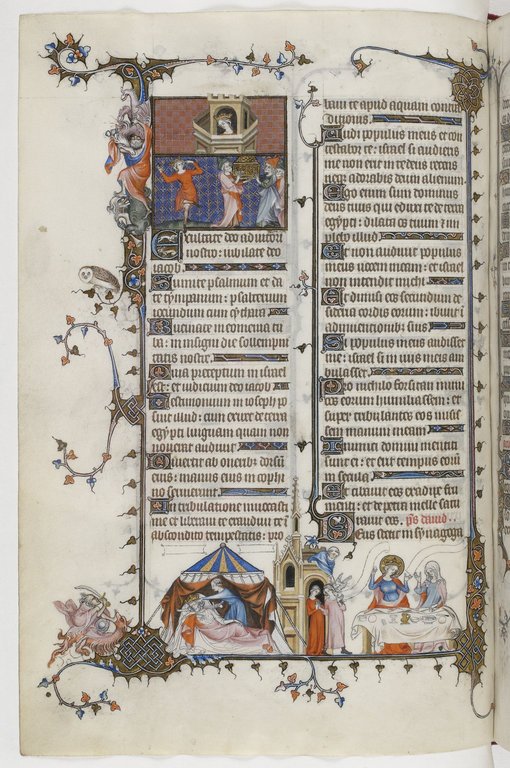 Exultate deo adiutori
nostro: iubilate deo
iacob
Sumite psalmum et da
te tympanum: psalterium
iocundum cum cythara
Bucinate in neomenia tu
ba: in insigni die sollempni
tatis nostre
Quia preceptum in israel
est: et iudicium deo iacob
Testimonium in ioseph po
suit illud: cum exiret de terra
egypti linguam quam non
noverat audiuit
Diuertit ab oneribus dorsum
eius: manus eius in cophi
no seruierunt
In tribulatione inuocasti
me et liberaui te exaudiui te i
abscondito tempestatis: pro
baui te apud aquam contra
dictionis
Audi populus meus et con
testabor te: israel si audieris
me non erit in te deus recens
neque adorabis deum alienum
Ego enim sum dominus
deus tuus qui eduxi te de terra
egypti: dilata os tuum et im
plebo illud
Et non audiuit populus
meus uocem meam: et israel
non intendit michi
Et dimisi eos secundum de
sideria cordis eorum: ibunt i
adinuentionibus suis
Si populus meus audisset
me: israel si in uiis meis am
bulasset
Pro nichilo forsitan inimi
cos eorum humiliassem: et
super tribulantes eos misis
sem manum meam
Inimici domini mentiti
sunt ei: et erit tempus eorum
in secula
Et cibauit eos ex adipe fru
menti: et de petra melle satu
rauit eos. ps dauid
Deus stetit in synagoga